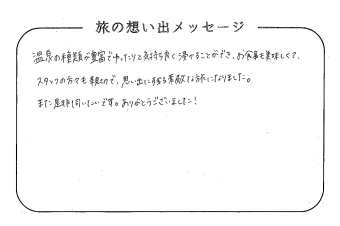 旅の想い出メッセージ
温泉の種類が豊富でゆったりと気持ち良く浸かることができ、お食事も美味しくて、
スタッフの方々も親切で、思い出に残る素敵な旅になりました。
また是非伺いたいです。ありがとうございました！